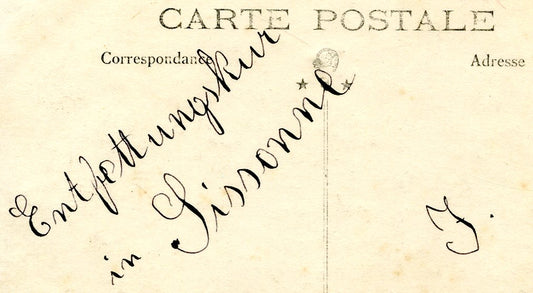 CARTE POSTALE
Correspondance
Adresse
Entfettungskur
in Sissonne
J.